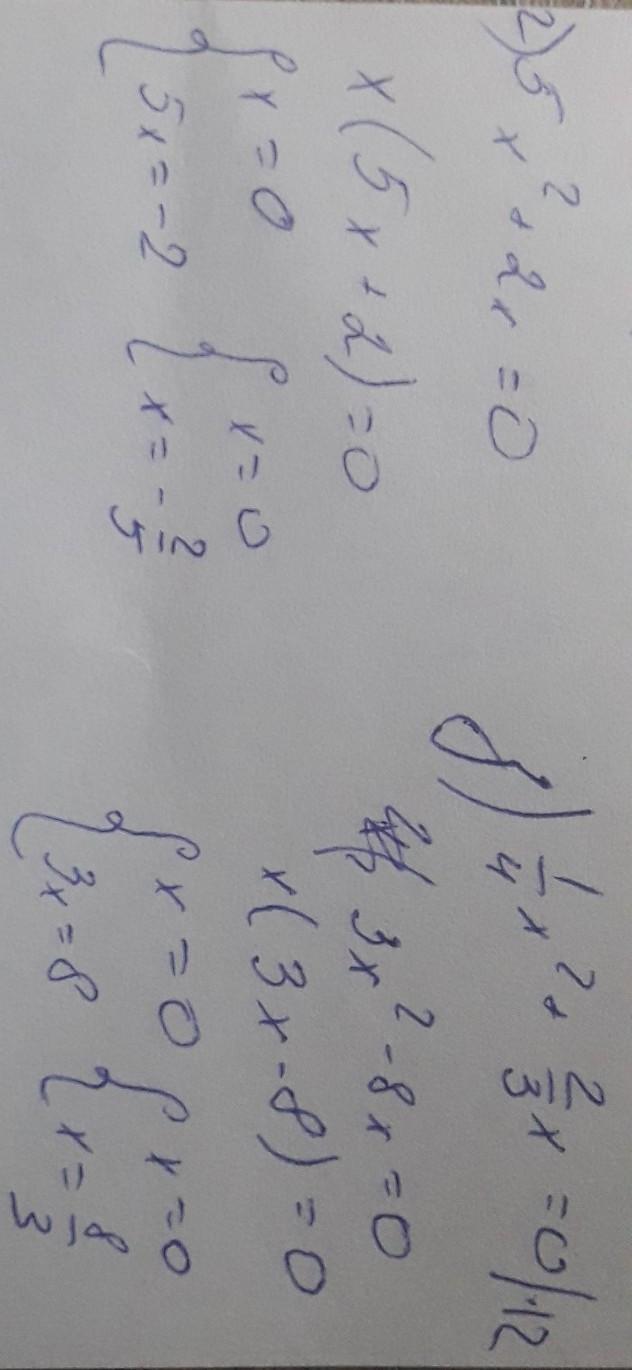 2) 5x² + 2x = 0
x(5x + 2) = 0
{ x = 0 { x = 0
{ 5x = -2 { x = -2/5
8) 1/4 x² + 2/3 x = 0 | ·12
3x² - 8x = 0
x(3x - 8) = 0
{ x = 0 { x = 0
{ 3x = 8 { x = 8/3